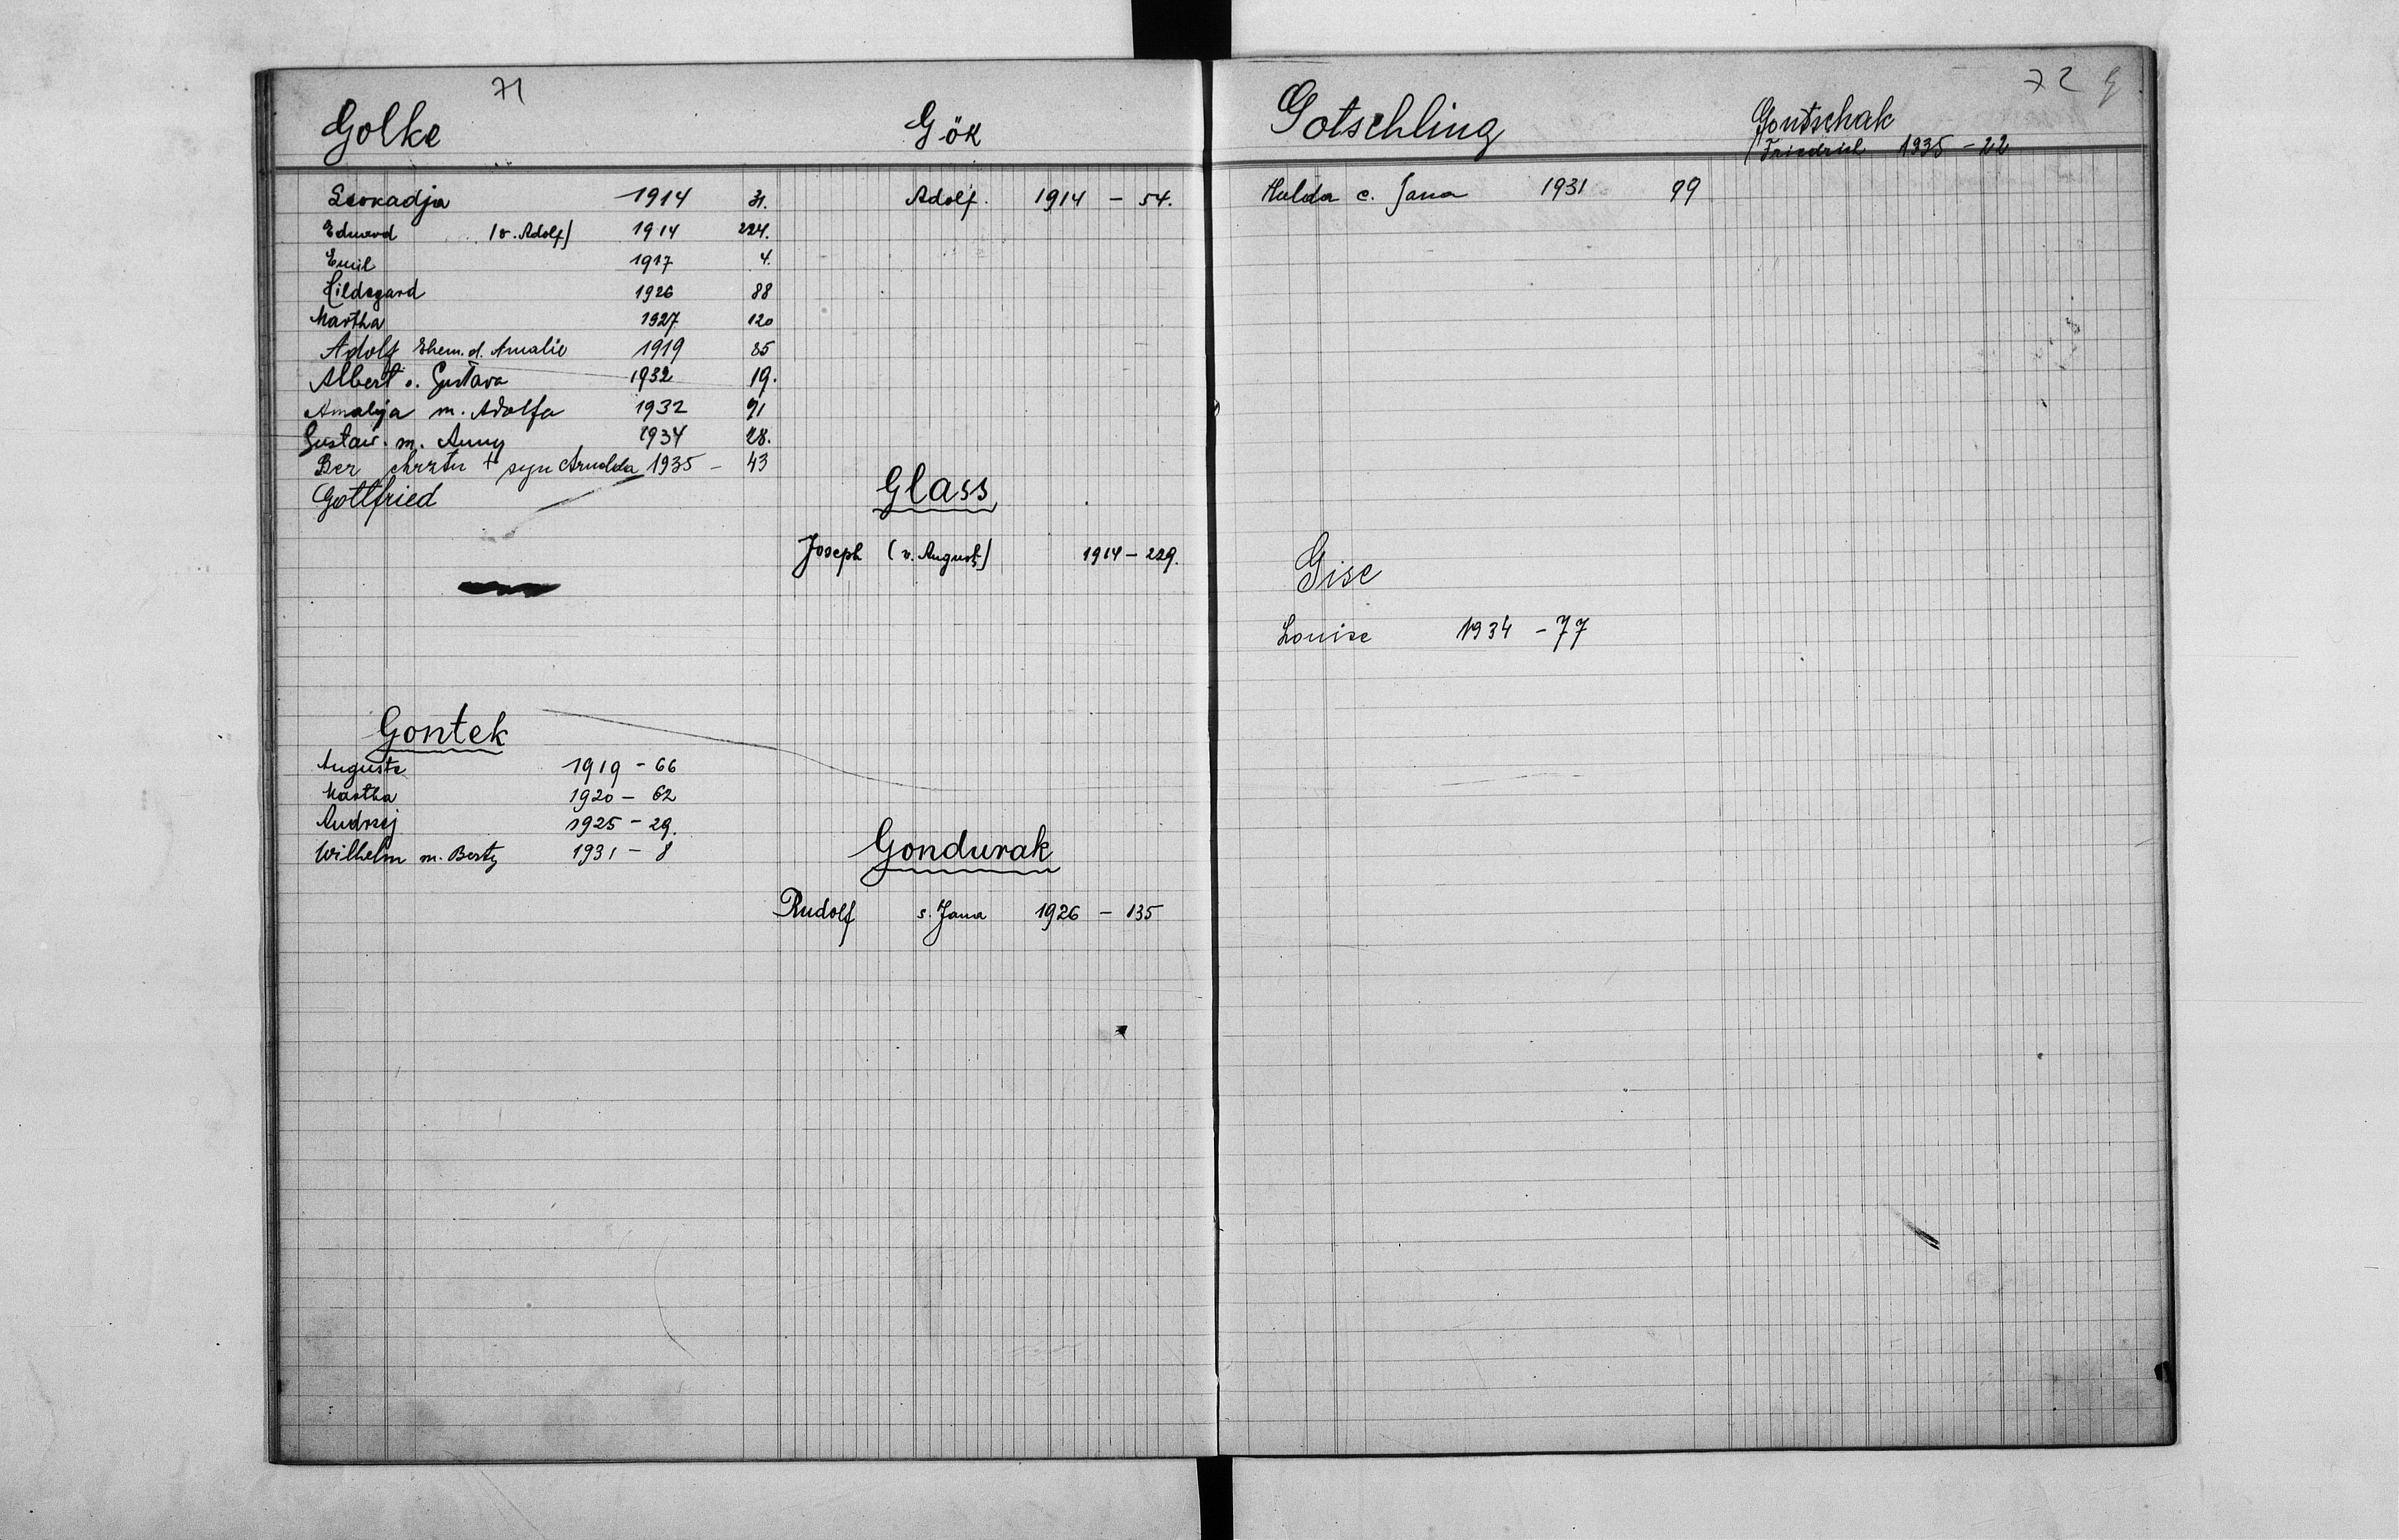 71
Golke
Leokadja 1914 31.
Eduard (v. Adolf) 1914 224.
Emil 1917 4.
Hildegard 1926 88
Martha 1927 120
Adolf Ehem. d. Amalie 1919 85
Albert s. Gustava 1932 19.
Amalija m. Adolfa 1932 71
Gustaw. m. Anny 1934 28.
Bez chrztu + syn Arnolda 1935 - 43
Gottfried
Gontek
Auguste 1919 - 66
Martha 1920 - 62
Andrzej 1925 - 29.
Wilhelm m. Berty 1931 - 8
Gök
Adolf. 1914 - 54.
Glass
Joseph (v. August) 1914 - 229.
Gondurak
Rudolf s. Jana 1926 - 135
72 G
Gotschling
Hulda c. Jana 1931 99
Gise
Louise 1934 - 77
Gontschak
Friedrich 1935 - 22